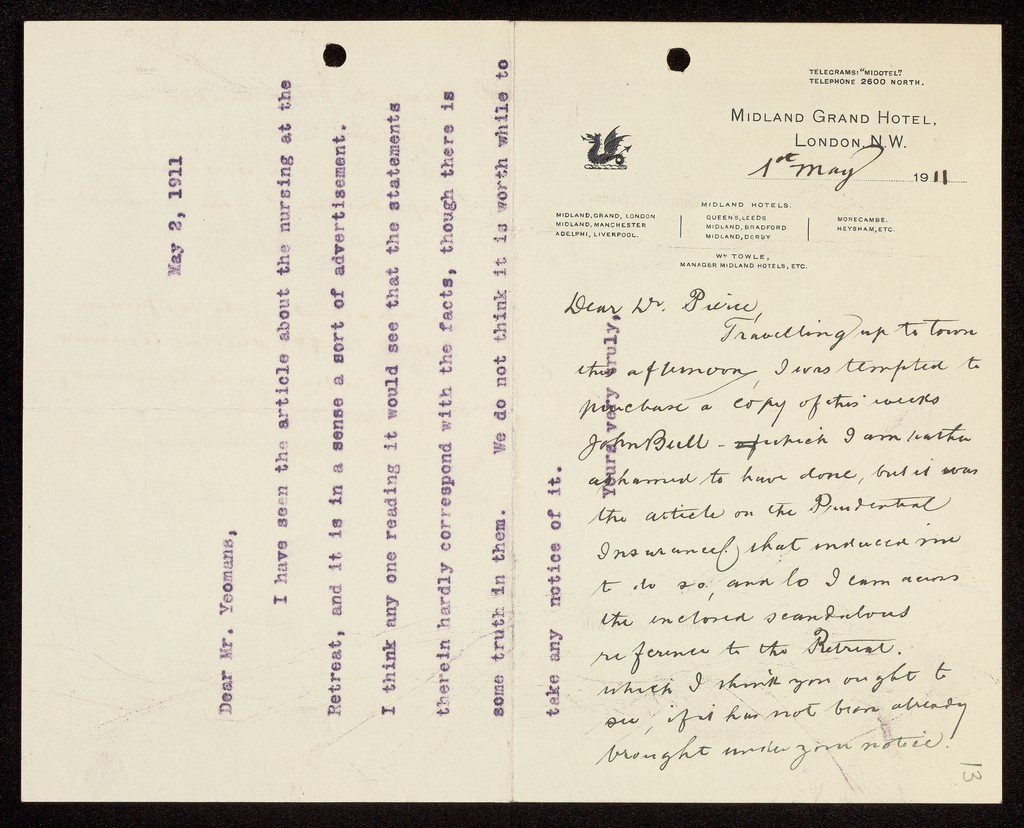 May 2, 1911
Dear Mr. Yeomans,
I have seen the article about the nursing at the
Retreat, and it is in a sense a sort of advertisement.
I think any one reading it would see that the statements
therein hardly correspond with the facts, though there is
some truth in them. We do not think it is worth while to
take any notice of it.
Yours very truly,
TELEGRAMS: "MIDOTEL".
TELEPHONE 2600 NORTH.
MIDLAND GRAND HOTEL,
LONDON, N.W.
1st May 1911
MIDLAND HOTELS.
MIDLAND, GRAND, LONDON
MIDLAND, MANCHESTER
ADELPHI, LIVERPOOL.
QUEENS, LEEDS
MIDLAND, BRADFORD
MIDLAND, DERBY
MORECAMBE.
HEYSHAM, ETC.
Wm TOWLE,
MANAGER MIDLAND HOTELS, ETC.
Dear Dr. Pierce,
Travelling up to town
this afternoon, I was tempted to
purchase a copy of this weeks
John Bull - which I am rather
ashamed to have done, but it was
the article on the Prudential
Insurance that induced me
to do so, and lo I cam across
the enclosed scandalous
reference to the Retreat.
which I think you ought to
see, if it has not been already
brought under your notice.
13